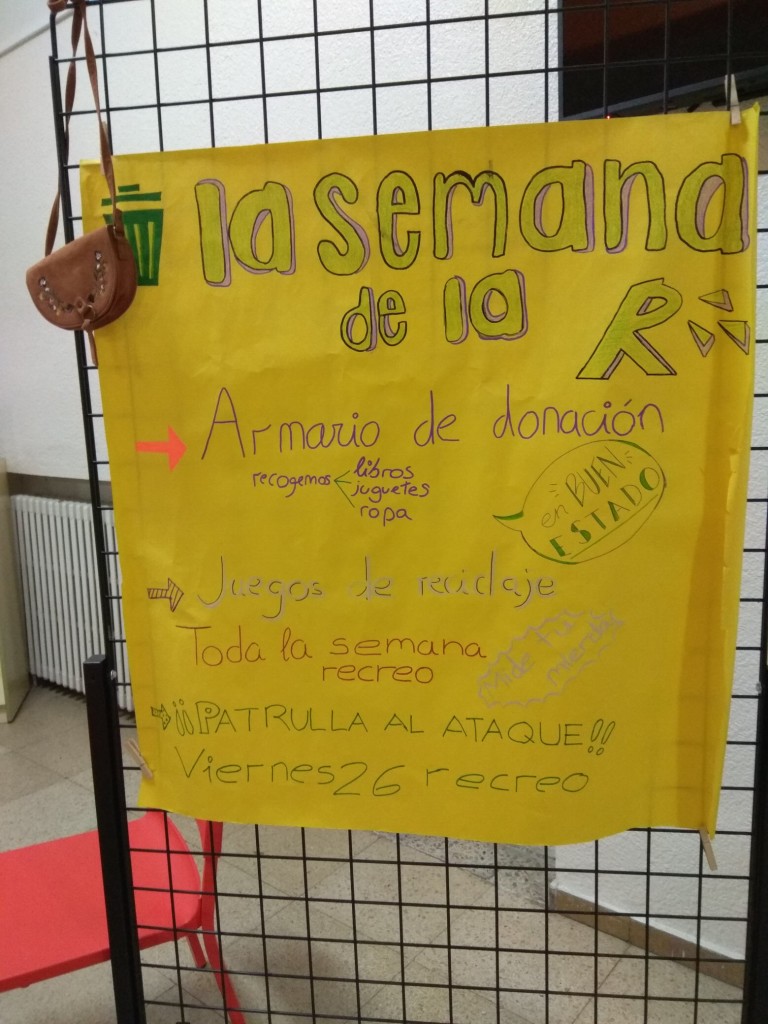 la semana
de la R
Armario de donación
recogemos
libros
juguetes
ropa
en BUEN
ESTADO
Juegos de reciclaje
Toda la semana
recreo
Mide tu
mierda
¡¡PATRULLA AL ATAQUE!!
Viernes 26 recreo